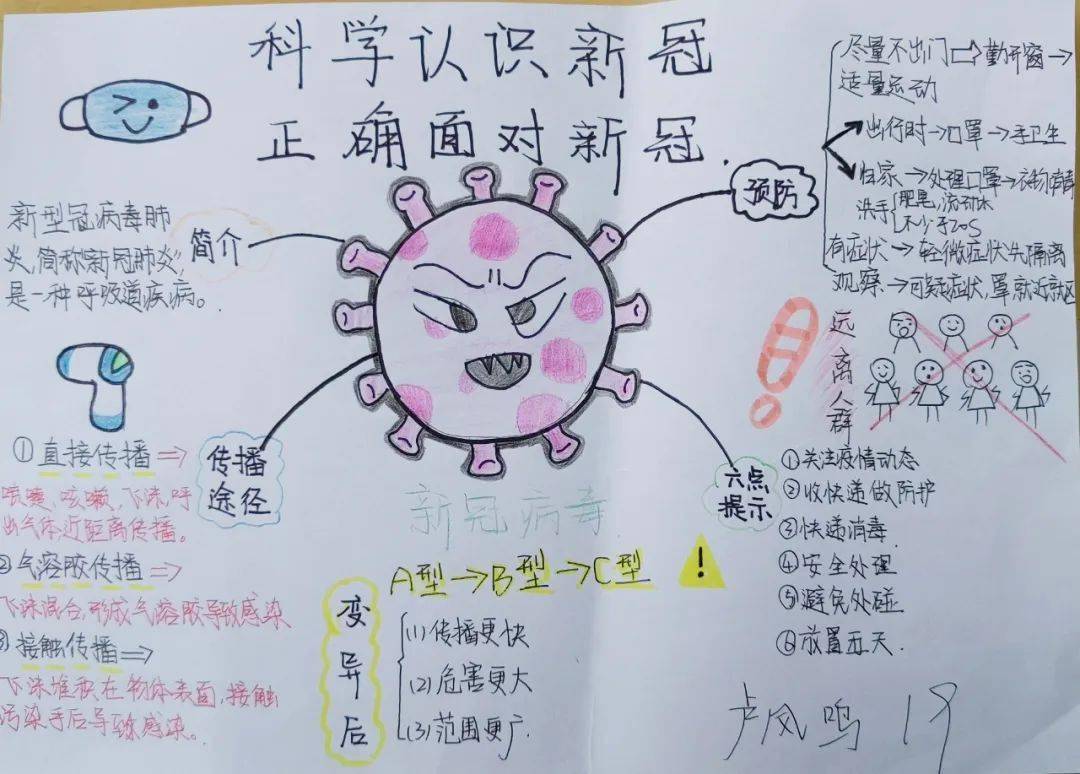 科学认识新冠
正确面对新冠.
简介
新型冠病毒肺
炎,简称"新冠肺炎",
是一种呼吸道疾病。
传播
途径
①直接传播⇒
喷嚏、咳嗽、飞沫、呼
出气体近距离传播。
②气溶胶传播⇒
飞沫混合,形成气溶胶导致感染
③接触传播⇒
飞沫堆积在物体表面,接触
污染手后导致感染。
新冠病毒
变
异
后
A型→B型→C型
(1)传播更快
(2)危害更大
(3)范围更广
!
预防
尽量不出门⇒勤开窗→
适量运动
出行时→口罩→手卫生
归家→处理口罩→衣物消毒
洗手 肥皂,流动水
不少于20S
有症状→轻微症状先隔离
观察→可疑症状,罩就近就医
远
离
人
群
六点
提示
①关注疫情动态
②收快递做防护
③快递消毒
④安全处理
⑤避免处碰
⑥放置五天.
卢风鸣 19